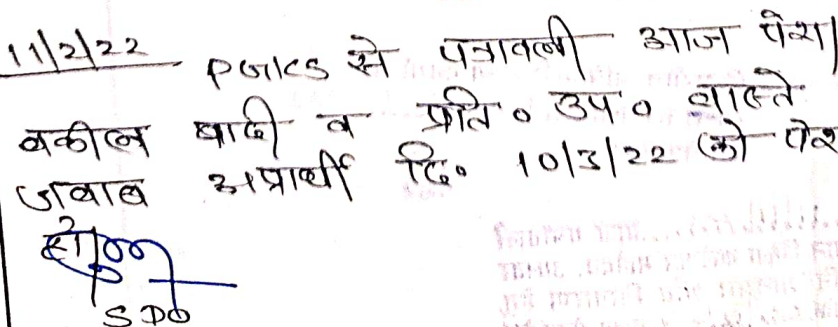 11/2/22 से पत्रावली आज पेश।
वकील वादी व प्रति० उप० वास्ते
जवाब अप्रार्थी दि० 10/3/22 को पेश
हो
SDO